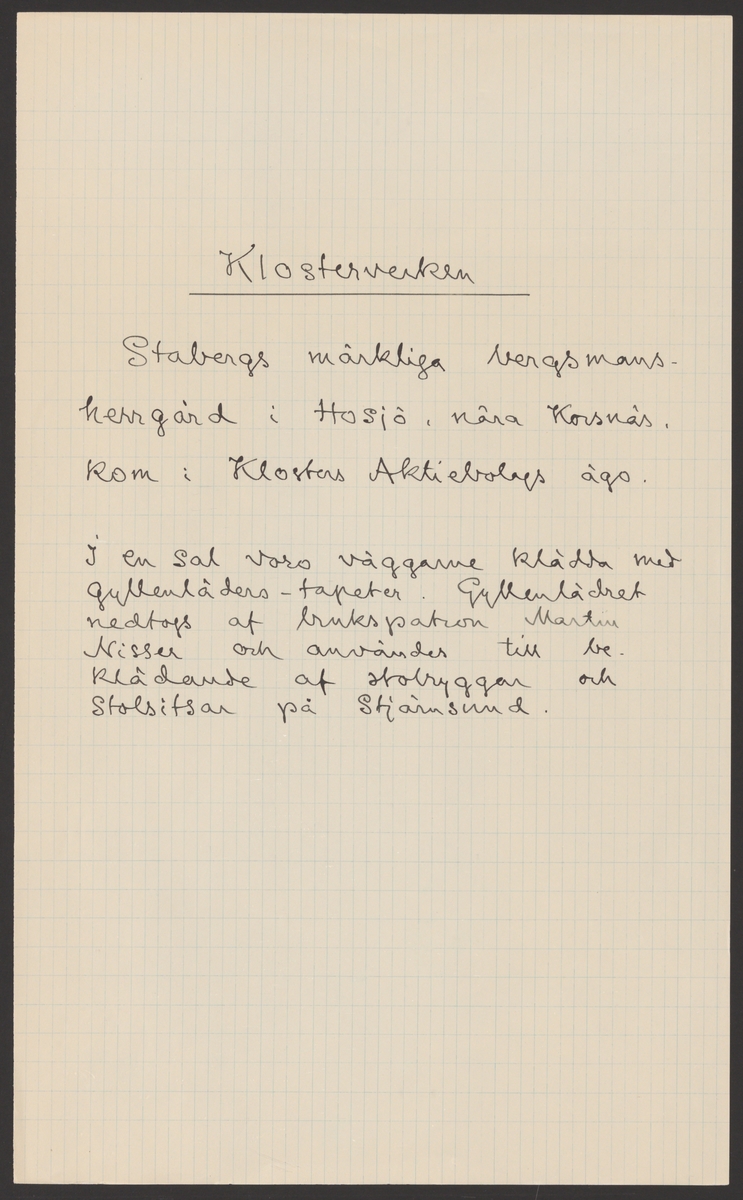 Klosterverken
Stabergs märkliga bergsmans-
herrgård i Hosjö, nära Korsnäs,
kom i Klosters Aktiebolags ägo.
I en sal voro väggarne klädda med
gyllenläders-tapeter. Gyllenlädret
nedtogs af brukspatron Martin
Nisser och användes till be-
klädande af stolryggar och
Stolsitsar på Stjärnsund.